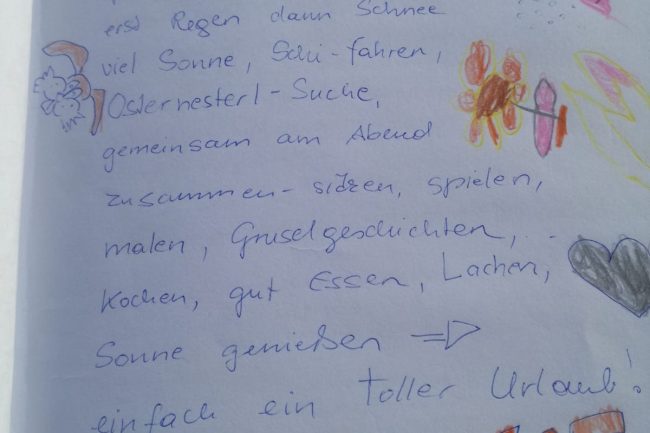 erst Regen dann Schnee
viel Sonne, Schi-fahren,
Osternesterl-Suche,
gemeinsam am Abend
zusammen-sitzen, spielen,
malen, Gruselgeschichten,
Kochen, gut Essen, Lachen,
Sonne genießen ⇒
einfach ein toller Urlaub!